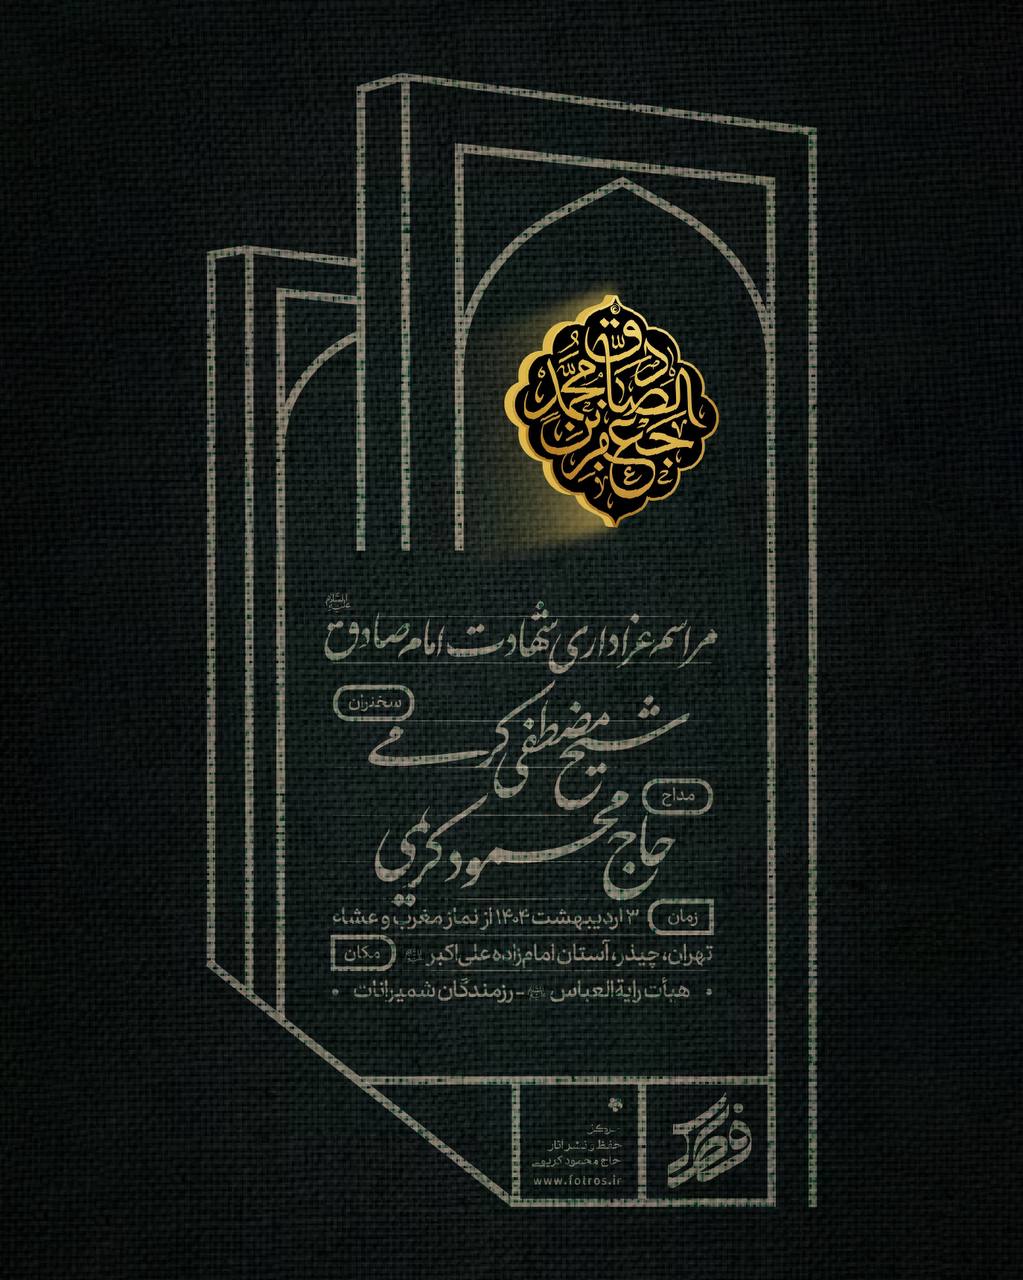 جعفر بن محمد الصادق
مراسم عزاداری شهادت امام صادق علیه السلام
سخنران
شیخ مصطفی کرمی
مداح
حاج محمود کریمی
زمان ۳ اردیبهشت ۱۴۰۴ از نماز مغرب و عشاء
تهران، چیذر، آستان امام‌زاده علی‌اکبر
مکان
• هیأت رایة العباس - رزمندگان شمیرانات •
فطرس
مرکز
حفظ و نشر آثار
حاج محمود کریمی
www.fotros.ir